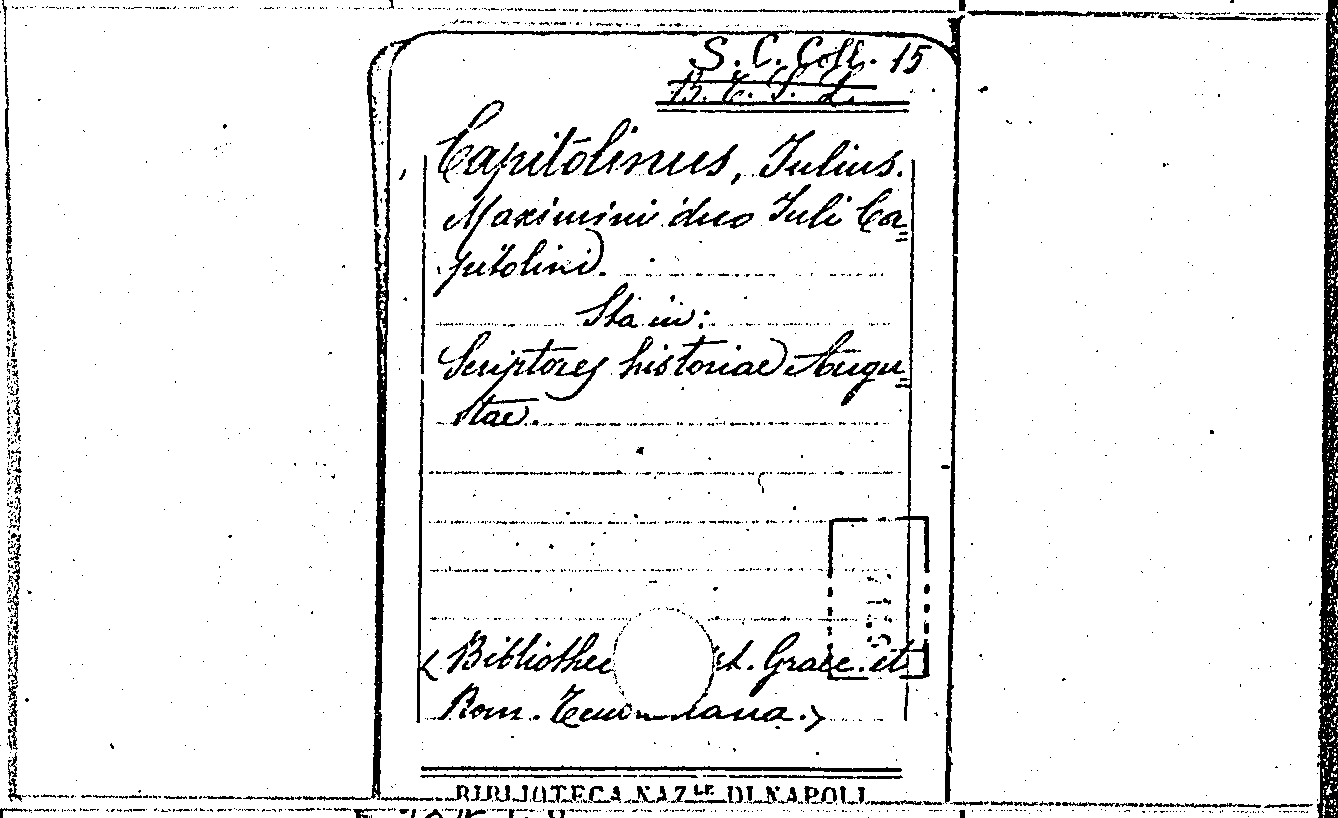 S. C. Coll. 15
B. T. S. L.
Capitolinus, Iulius.
Maximini duo Iuli Ca=
pitolini.
Sta in:
Scriptores historiae Augu=
stae.
<Bibliothe t. Graec. et
Rom. Teu iana.>
BIBLIOTECA NAZ.LE DI NAPOLI